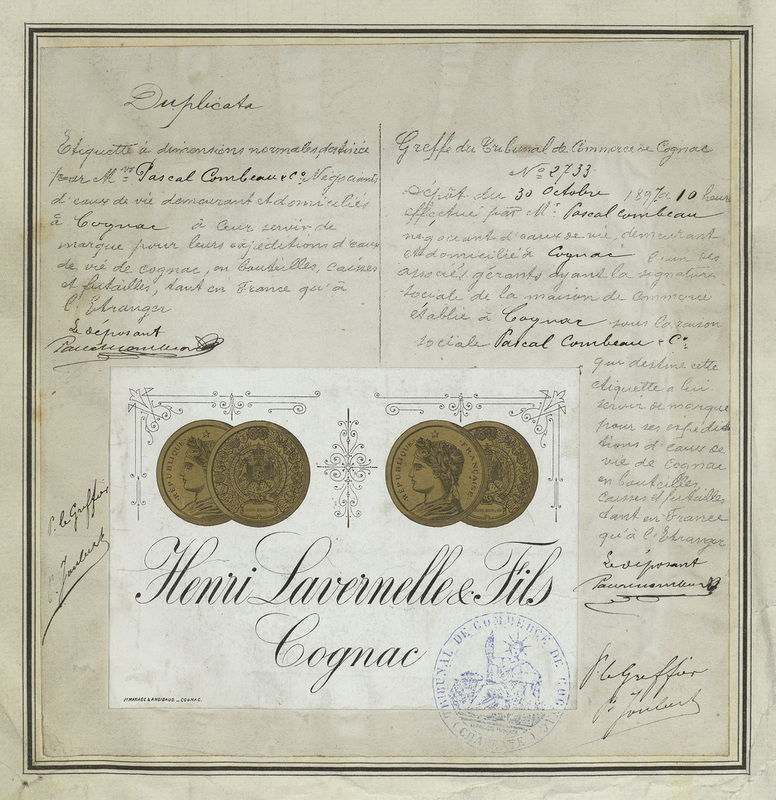 Duplicata
Etiquette à dimensions normales, destinée
par Mrs Pascal Combeau & Co. Négociants
d'eaux de vie demeurant et domiciliés
à Cognac à leur servir de
marque pour leurs expéditions d'eaux
de vie de cognac, en bouteilles, caisses
et futailles, tant en France qu'à
l'Etranger
Le déposant
Greffe du Tribunal de Commerce de Cognac
No 2733
Dépôt du 30 Octobre 1897 à 10 heures
effectué par Mr. Pascal Combeau
négociant d'eaux de vie, demeurant
et domicilié à Cognac l'un des
associés gérants ayant la signature
sociale de la maison de commerce
établie à Cognac sous la raison
sociale Pascal Combeau & Co
qui destine cette
étiquette à lui
servir de marque
pour ses expédi-
tions d'eaux de
vie de cognac
en bouteilles,
caisses et futailles
tant en France
qu'à l'Etranger
Le déposant
P. le Greffier
P. Joubert
RÉPUBLIQUE
RÉPUBLIQUE FRANÇAISE
Henri Lavernelle & Fils
Cognac
COGNAC.
TRIBUNAL DE COMMERCE DE COGNAC
(CHARENTE)
P. le Greffier
P. Joubert